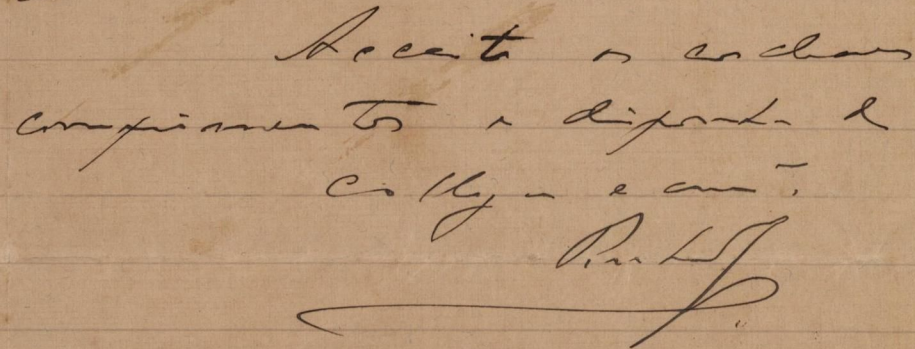 Acceite os cordeaes
comprimentos e disponha do
Collega e amº.